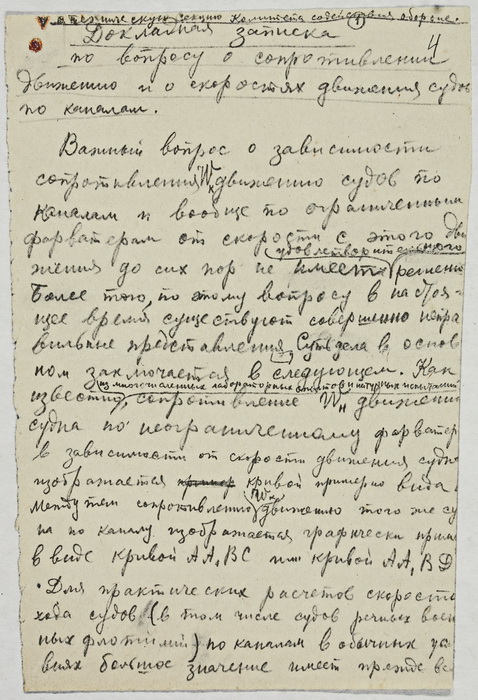 в техническую секцию Комитета содействия обороне.
Докладная записка
4
по вопросу о сопротивлении
движению и о скоростях движения судов
по каналам.
Важный вопрос о зависимости
сопротивления Wк движению судов по
каналам и вообще по ограниченным
фарватерам от скорости с этого дви
удовлетворительного
жения до сих пор не имеет решения
Более того, по этому вопросу в настоя-
щее время существуют совершенно непра
вильные представления. Суть дела в основ
ном заключается в следующем. Как
из многочисленных лабораторных опытов и натурных испытаний
известно, сопротивление Wн движению
судна по неограниченному фарватер
в зависимости от скорости движения судна
изображается кривой примерно вида
Между тем сопротивление Wк движению того же су
на по каналу изображается графически прим
в виде кривой AA,BC или кривой AA,BD
Для практических расчетов скорости
хода судов (в том числе судов речных воен
ных флотилий) по каналам в обычных усл
виях большое значение имеет прежде все